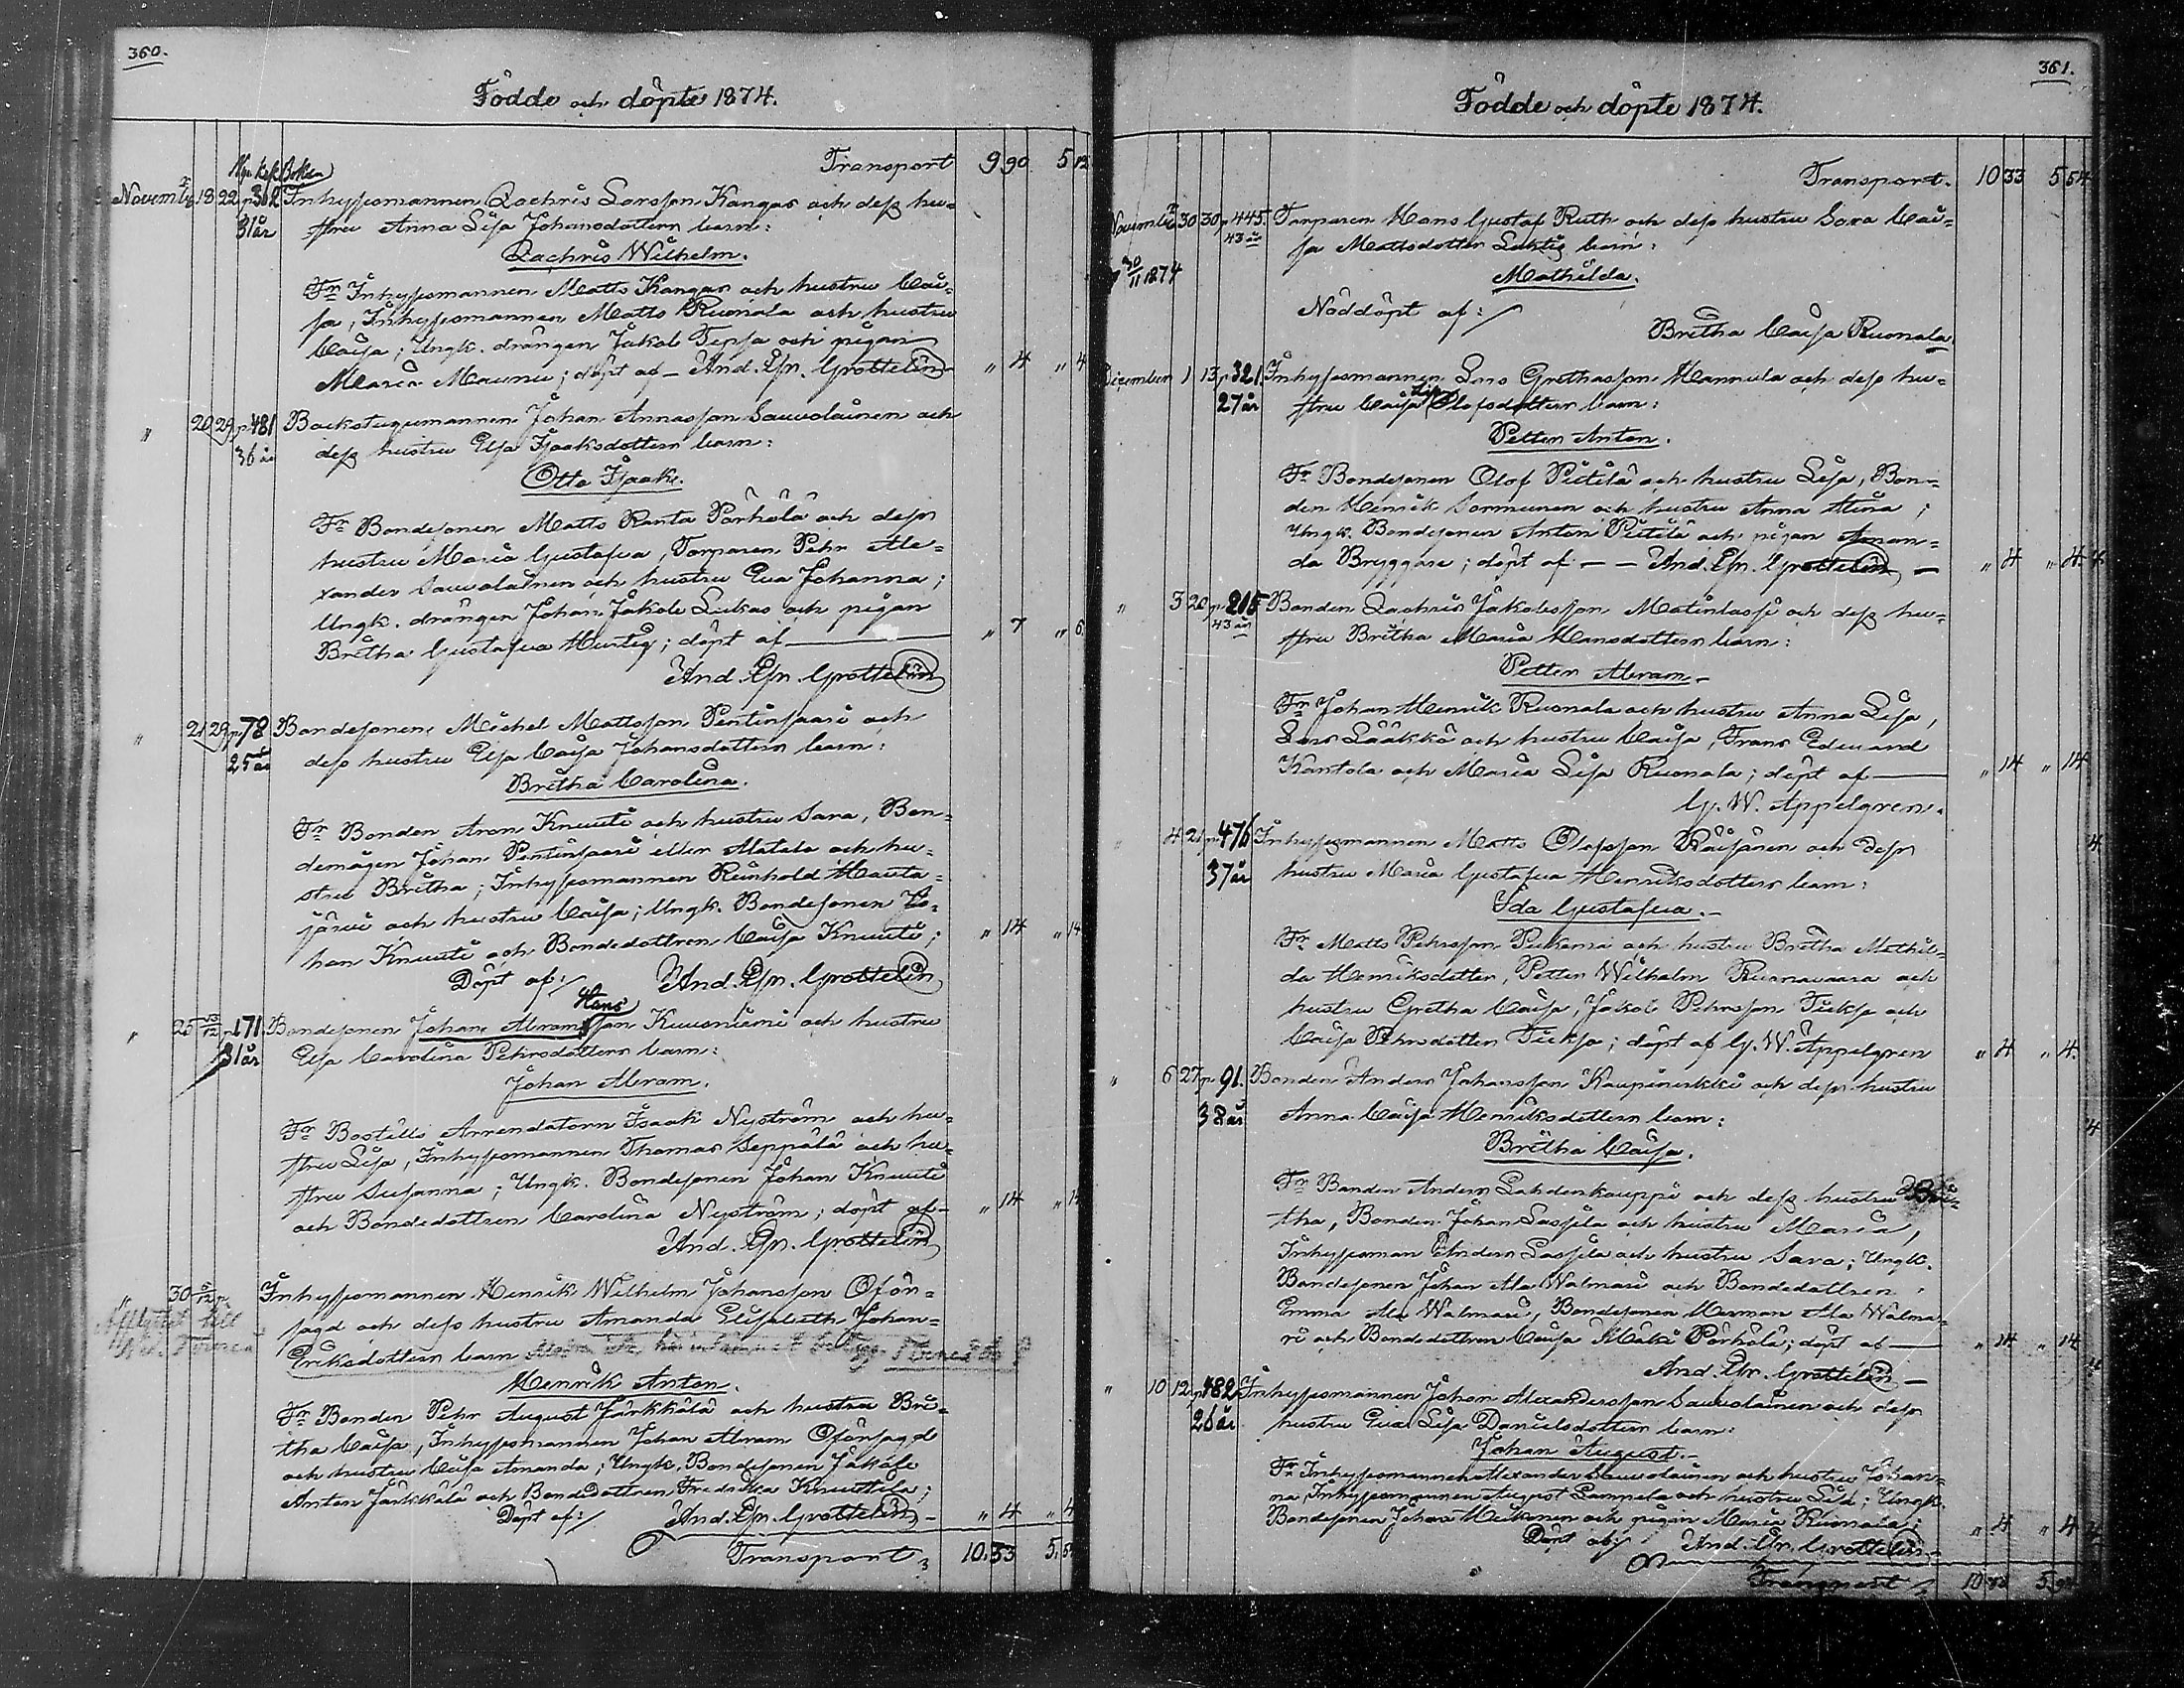 360.
Födde och döpte 1874.
Nya K. Boken
Transport 9 90 5 12
Novembr 18 22 p. 362 Inhyssomannen Zachris Larsson Kangas och dess hu-
31 år stru Anna Lisa Johansdotters barn:
Zachris Wilhelm.
Fr. Inhyssomannen Matts Kangas och hustru Cai-
sa, Inhyssomannen Matts Ruonala och hustru
Caisa; Ungk. drängen Jakob Tepsa och pigan
Maria Maunu; döpt af – And. Joh. Grottelin " 4 " 4
" 20 29 p. 481 Backstugumannen Johan Annasson Sauvolainen och
36 år dess hustru Elsa Isaksdotters barn:
Otto Isaak.
Fr. Bondesonen Matts Ranta Pörhölä och dess
hustru Maria Gustafva, Torparen Pehr Ale-
xander Sauvolainen och hustru Eva Johanna;
Ungk. drängen Johan Jakob Lukas och pigan
Britha Gustafva Hurtig; döpt af " 7 " 6
And. Joh. Grottelin
" 21 29 p. 78 Bondesonen Michel Mattsson Pentinsaari och
25 år dess hustru Elsa Caisa Johansdotters barn:
Britha Carolina.
Fr. Bonden Aron Knuuti och hustru Sara, Bon-
demågen Johan Pentinsaari eller Alatalo och hu-
stru Britha; Inhyssomannen Reinhold Mauta-
järvi och hustru Caisa; Ungk. Bondesonen Jo-
han Knuuti och Bondedottren Caisa Knuuti; " 14 " 14
Döpt af: And. Joh. Grottelin
Hans
" 25 13/12 p. 171. Bondesonen Johan Abramsson Kuusniemi och hustru
31 år Elsa Carolina Pehrsdotters barn:
Johan Abram.
Fr. Boställs Arrendatorn Isaak Nyström och hu-
stru Lisa, Inhyssomannen Thomas Seppälä och hu-
stru Susanna; Ungk. Bondesonen Johan Knuuti
och Bondedottren Carolina Nyström; döpt af – " 14 " 14
And. Joh. Grottelin
" 30 5/12 p. Inhyssomannen Henrik Wilhelm Johansson Oförr-
Afflyttat till sagd och dess hustru Amanda Elisabeth Johan-
Ned. Torneå Eriksdotters barn
Henrik Anton.
Fr. Bonden Pehr August Järkkälä och hustru Bri-
tha Caisa, Inhyssomannen Johan Abram Oförsagd
och hustru Caisa Amanda; Ungk. Bondesonen Jakob
Anton Järkkälä och Bondedottren Fredrika Knuutila;
Döpt af: And. Joh. Grottelin – " 4 " 4
Transport, 10. 33 5. 54
361.
Födde och döpte 1874.
Transport. 10 33 5 54
Novembr 30 30 p. 445. Torparen Hans Gustaf Ruth och dess hustru Sara Cai-
43 år sa Mattsdotter Lahtis barn:
30/11 1874 Mathilda.
Nöddöpt af:
Britha Caisa Ruonala
December 1 13 p. 321 Inhyssomannen Lars Grethasson Mannula och dess hu-
27 år stru Caisa Lisa Olofsdotters barn:
Petter Anton.
Fr. Bondesonen Olof Piitilä och hustru Lisa, Bon-
den Henrik Sormunen och hustru Anna Stina;
Ungk. Bondesonen Anton Piitilä och pigan Aman-
da Bryggare; döpt af – – And. Joh. Grottelin – " 4 " 4
" 3 20 p. 205 Bonden Zachris Jakobsson Matinlassi och dess hu-
43 år stru Britha Maria Hansdotters barn:
Petter Abram –
Fr. Johan Henrik Ruonala och hustru Anna Lisa,
Lars Lääkkö och hustru Caisa, Frans Eduard
Kantola och Maria Lisa Ruonala; döpt af " 14 " 14
G. W. Appelgren.
" 4 21 p. 476 Inhyssomannen Matts Olofsson Räisänen och dess
37 år hustru Maria Gustafva Henriksdotters barn:
Ida Gustafva. –
Fr. Matts Pehrsson Pukema och hustru Britha Mathil-
da Henriksdotter, Petter Wilhelm Ruonavaara och
hustru Gretha Caisa, Jakob Pehrsson Tiiksa och
Caisa Pehrsdotter Tiiksa; döpt af G. W. Appelgren " 4 " 4.
" 6 27 p. 91. Bonden Anders Johansson Kaupinerkki och dess hustru
38 år Anna Caisa Henriksdotters barn:
Britha Caisa.
Fr. Bonden Anders Lahdenkauppi och dess hustru Bri-
tha, Bonden Johan Lassila och hustru Maria,
Inhyssoman Anders Lassila och hustru Sara; Ungk.
Bondesonen Johan Ala Walmari och Bondedottren
Emma Ala Walmari, Bondesonen Herman Ala Walma-
ri och Bondedottren Caisa Mäki Pörhölä; döpt af " 14 " 14
And. Joh. Grottelin –
" 10 12 p. 482 Inhyssomannen Johan Alexandersson Sauvolainen och dess
26 år hustru Eva Lisa Danielsdotters barn:
Johan August. –
Fr. Inhyssomannen Alexander Sauvolainen och hustru Johan-
na, Inhyssomannen August Lampela och hustru Lisa; Ungk.
Bondesonen Johan Heikonen och pigan Maria Ruonala; " 4 " 4
Döpt af: And. Joh. Grottelin –
Transport